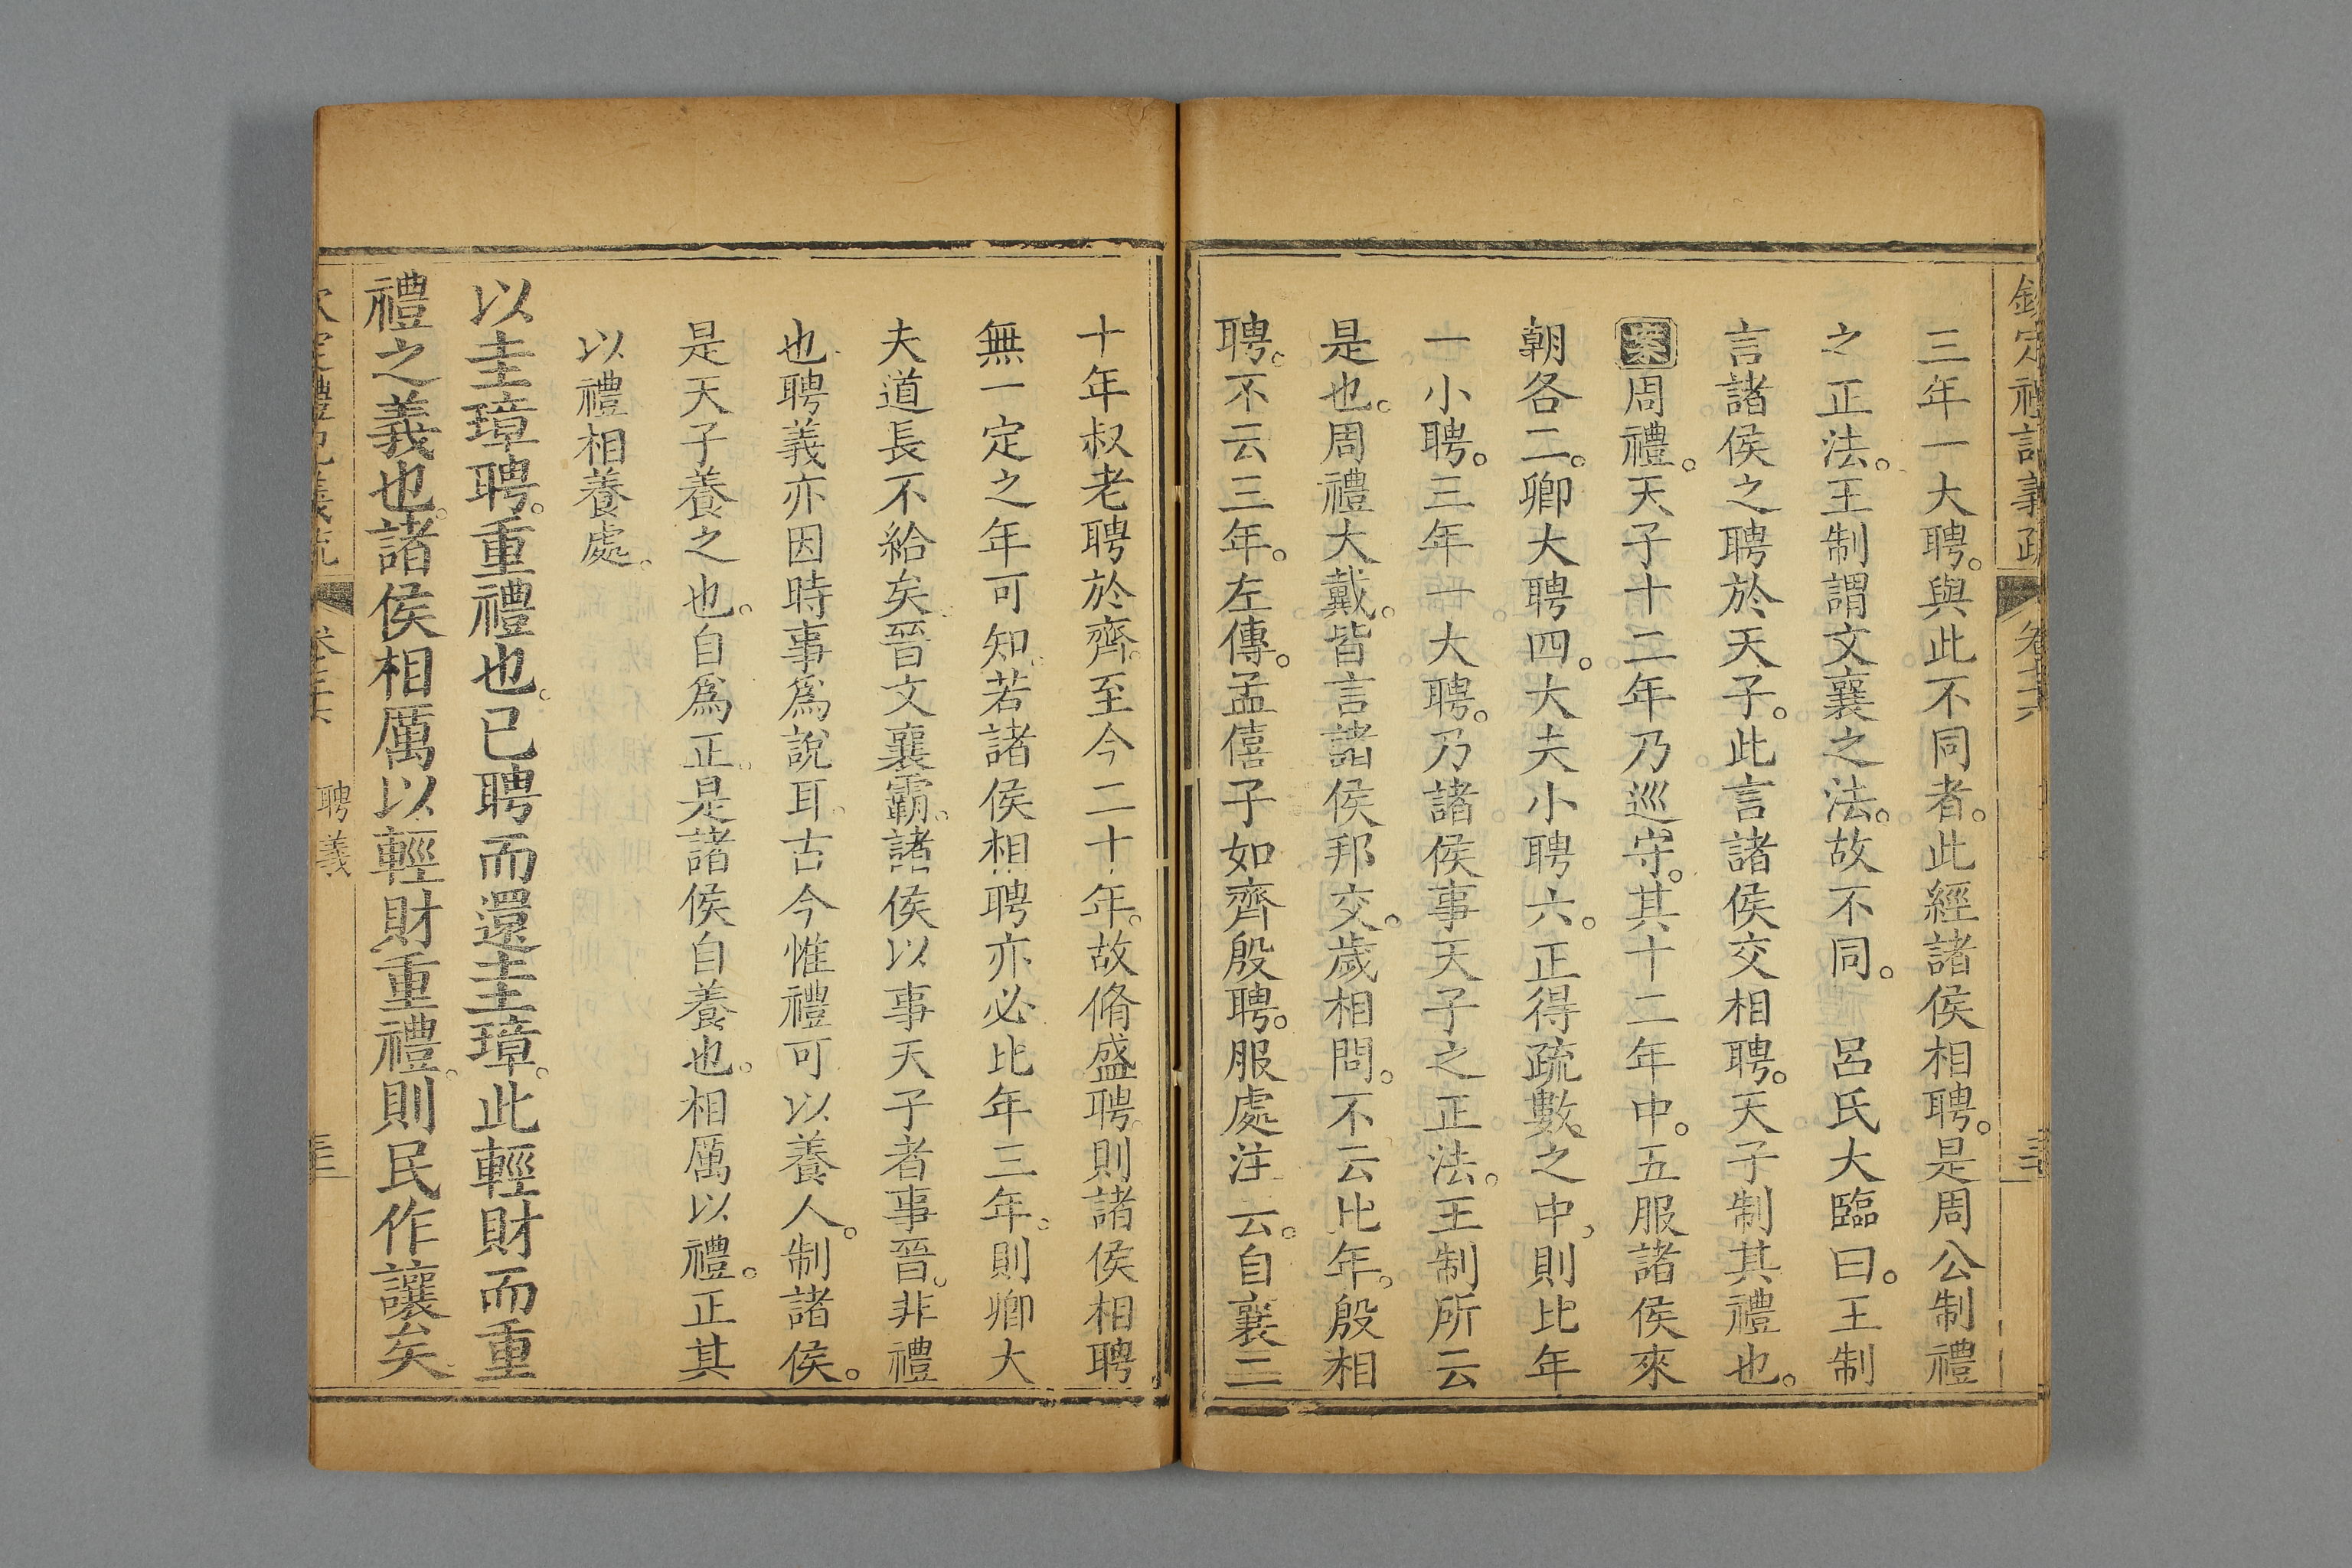 欽定禮記義疏　卷七十六
三年一大聘。與此不同者。此經諸侯相聘。是周公制禮
之正法。王制謂文襄之法。故不同。　呂氏大臨曰。王制
言諸侯之聘於天子。此言諸侯交相聘。天子制其禮也。
案周禮。天子十二年乃巡守。其十二年中。五服諸侯來
朝各二。卿大聘四。大夫小聘六。正得疏數之中、則比年
一小聘。三年一大聘。乃諸侯事天子之正法。王制所云
是也。周禮大戴。皆言諸侯邦交。歲相問。不云比年。殷相
聘。不云三年。左傳。孟僖子如齊殷聘。服處注云。自襄二
十年叔老聘於齊。至今二十年。故脩盛聘。則諸侯相聘
無一定之年可知。若諸侯相聘亦必比年三年。則卿大
夫道長不給矣。晉文襄霸。諸侯以事天子者事晉。非禮
也。聘義亦因時事爲說耳。古今惟禮可以養人。制諸侯。
是天子養之也。自爲正。是諸侯自養也。相厲以禮。正其
以禮相養處。
以圭璋聘。重禮也。已聘而還圭璋。此輕財而重
禮之義也。諸侯相厲以輕財重禮。則民作讓矣。
聘義